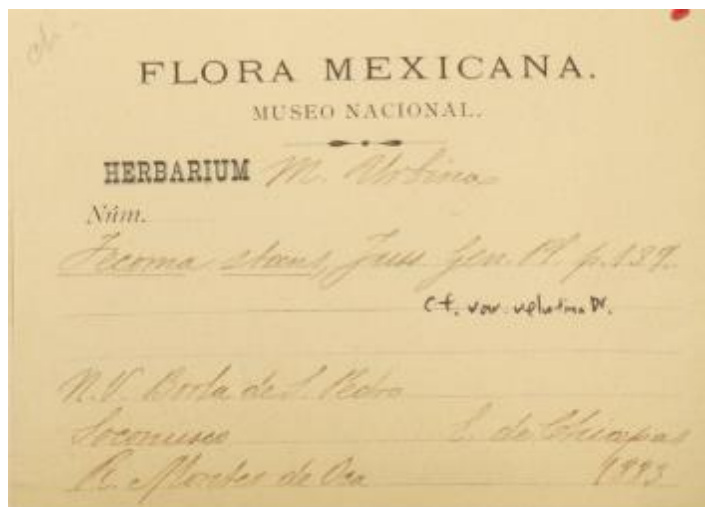 FLORA MEXICANA.
MUSEO NACIONAL.
HERBARIUM M. Urbina
Núm.
Tecoma stans, Juss Gen. Pl. p. 139.
cf. var. velutina DC.
N.V. Borla de S. Pedro
Soconusco E. de Chiapas
R. Montes de Oca 1883